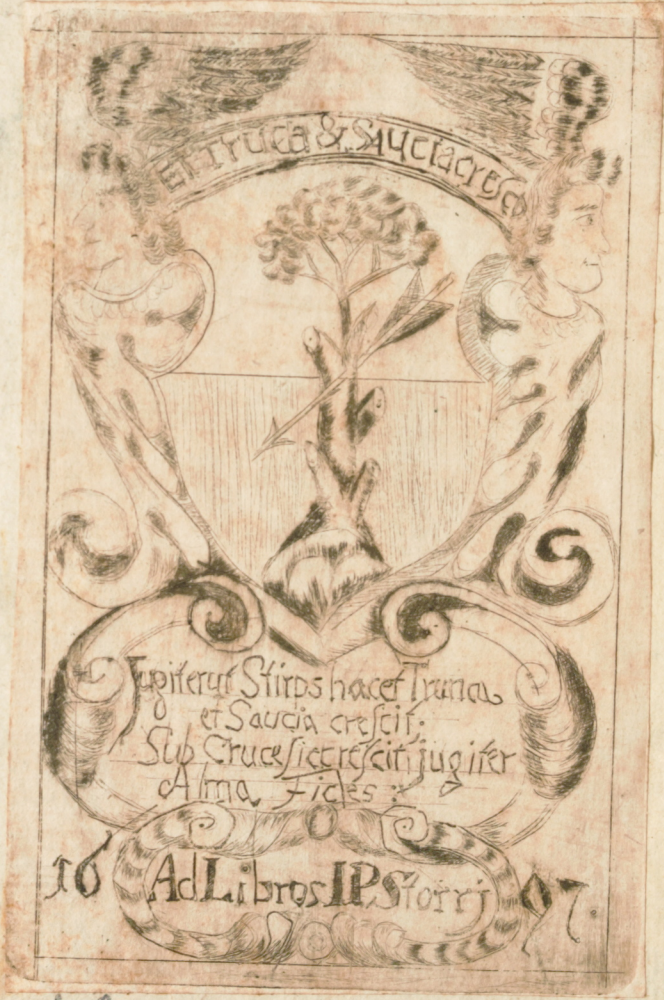 Et Truca & Saucia cresco
Jugiter ut Stirps hacet Trunca
et Saucia crescit;
Sub Cruce sic crescit jugiter
Alma Fides:
16 Ad Libros IP Storri 97.